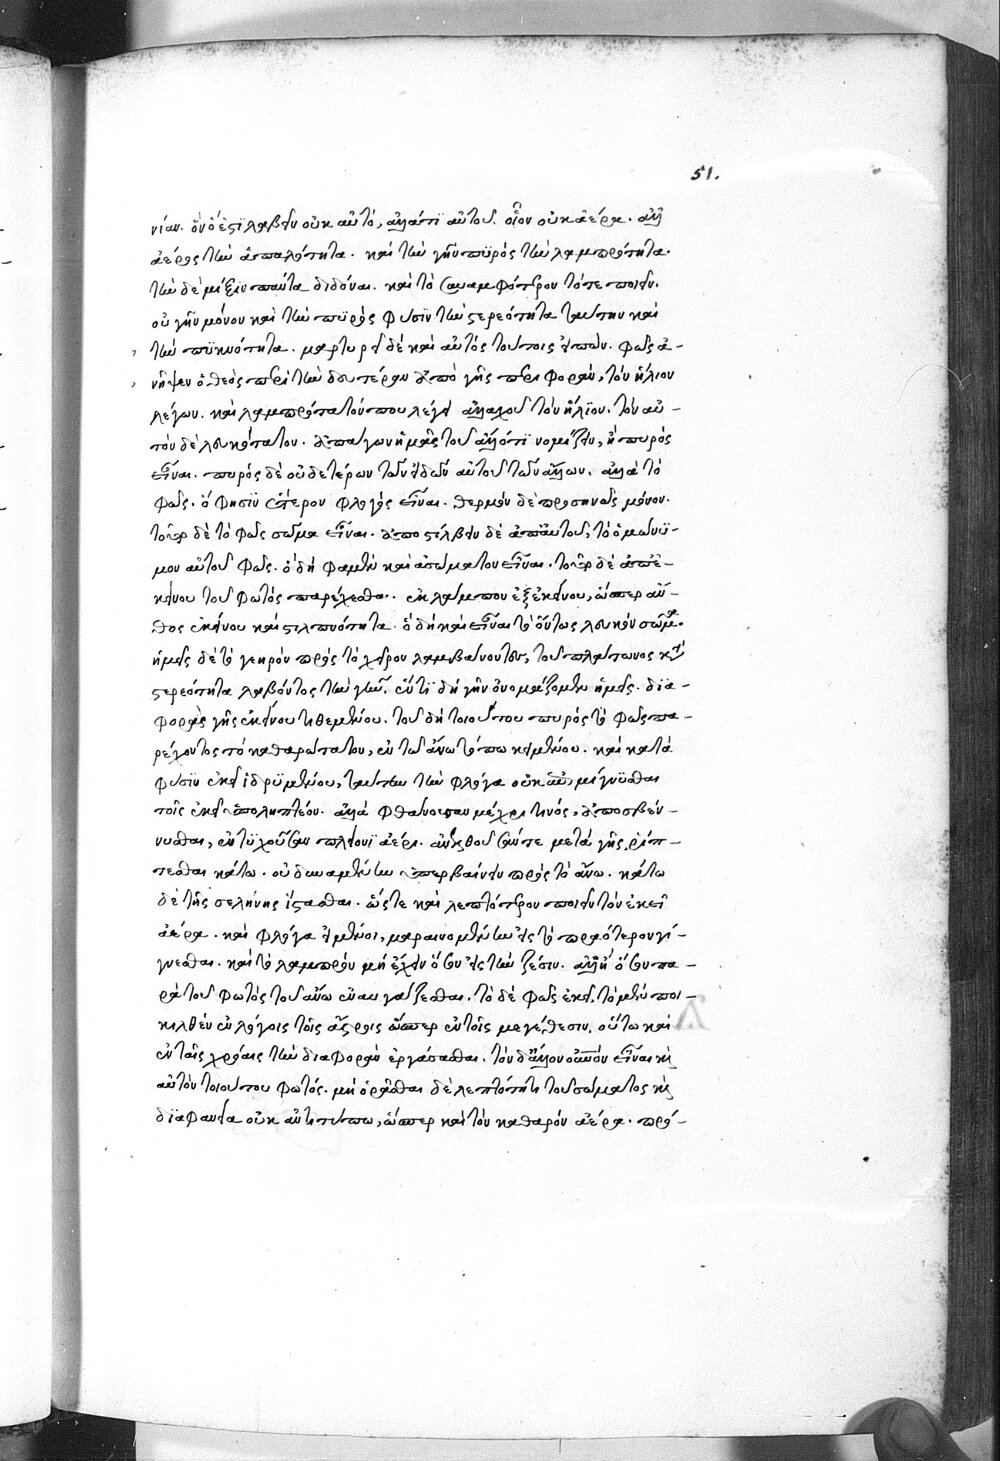 51.
νίαν. ὃ νό ἐστὶ λαβεῖν οὐκ αὐτό, ἀλλά τι αὐτοῦ. οἷον οὐκ ἀέρα. ἀλλ᾽
ἀέρος τὴν ἁπαλότητα. καὶ τὴν γῆν πυρὸς τὴν λαμπρότητα.
τὴν δὲ μίξιν πάντα διδόναι. καὶ τὸ συναμφότερον τότε ποιεῖν.
οὐ γῆν μόνον καὶ τὴν πυρὸς φύσιν τὴν στερεότητα ταύτην καὶ
τὴν πυκνότητα. μαρτυρεῖ δὲ καὶ αὐτὸς τούτοις εἰπών. φῶς ἀ-
νῆψεν ὁ θεὸς περὶ τὴν δευτέραν ἀπὸ γῆς περιφοράν, τὸν ἥλιον
λέγων. καὶ λαμπρότατόν που λέγει ἀλλαχοῦ τὸν ἥλιον. τὸν αὐ-
τὸν δὲ λευκότατον. ἀπάγων ἡμᾶς τοῦ ἄλλό τι νομίζειν, ἢ πυρὸς
εἶναι. πυρὸς δὲ οὐδετέρων τῶν εἰδῶν αὐτοῦ τῶν ἄλλων. ἀλλὰ τὸ
φῶς. ὅ φησιν ἕτερον φλογὸς εἶναι. θερμὸν δὲ προσηνῶς μόνον.
τοῦτο δὲ τὸ φῶς σῶμα εἶναι. ἀποστίλβειν δὲ ἀπ᾽ αὐτοῦ, τὸ ὁμώνυ-
μον αὐτοῦ φῶς. ὃ δή φαμεν καὶ ἀσώματον εἶναι. τοῦτο δὲ ἀπ᾽ ἐ-
κείνου τοῦ φωτὸς παρέχεσθαι. ἐκλάμπον ἐξ ἐκείνου, ὥσπερ ἄν-
θος ἐκείνου καὶ στιλπνότητα. ὃ δὴ καὶ εἶναι τὸ ὄντως λευκὸν σῶμα.
ἡμεῖς δὲ τὸ γεηρὸν πρὸς τὸ χεῖρον λαμβάνοντες, τοῦ πλάτωνος κατὰ
στερεότητα λαβόντος τὴν γῆν. ἕν τι δὴ γῆν ὀνομάζομεν ἡμεῖς. δια-
φορὰς γῆς ἐκείνου τιθεμένου. τοῦ δὴ τοιούτου πυρὸς τὸ φῶς πα-
ρέχοντος τὸ καθαρώτατον, ἐν τῷ ἄνω τόπῳ κειμένου. καὶ κατὰ
φύσιν ἐκεῖ ἱδρυμένου, ταύτην τὴν φλόγα οὐκ ἂν, μίγνυσθαι
τοῖς ἐκεῖ ὑποληπτέον. ἀλλὰ φθάνουσαν μέχρι τινὸς, ἀποσβέν-
νυσθαι, ἐντυχοῦσαν πλείονι ἀέρι. ἀνελθοῦσάν τε μετὰ γῆς ῥίπ-
τεσθαι κάτω. οὐ δυναμένην ὑπερβαίνειν πρὸς τὸ ἄνω. κάτω
δὲ τῆς σελήνης ἵστασθαι. ὥστε καὶ λεπτότερον ποιεῖν τὸν ἐκεῖ
ἀέρα. καὶ φλόγα εἰ μένοι, μαραινομένην εἰς τὸ πραότερον γί-
γνεσθαι. καὶ τὸ λαμπρὸν μὴ ἔχειν ὅσον εἰς τὴν ζέσιν. ἀλλ᾽ ἢ ὅσον πα-
ρὰ τοῦ φωτὸς τοῦ ἄνω ἐναυγάζεσθαι. τὸ δὲ φῶς ἐκεῖ. τὸ μὲν ποι-
κιλθὲν ἐν λόγοις τοῖς ἄστροις ὥσπερ ἐν τοῖς μεγέθεσιν. οὕτω καὶ
ἐν ταῖς χρόαις τὴν διαφορὰν ἐργάσασθαι. τὸν δ᾽ ἄλλον οὐρανὸν εἶναι καὶ
αὐτὸν τοιούτου φωτός. μὴ ὁρᾶσθαι δὲ λεπτότητι τοῦ σώματος καὶ
διαφανεία οὐκ ἀντιτύπω, ὥσπερ καὶ τὸν καθαρὸν ἀέρα. πρό-